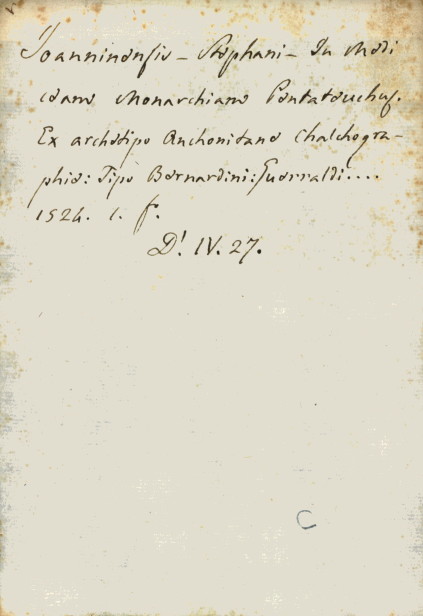 Joanninensis - Stephani - In Medi
ceam Monarchiam Pentateuchus.
Ex archetipo Anchonitano Chalchogra-
phie: Tipo Bernardini: Guerraldi....
1524. 1. f.
D! IV. 27.
C